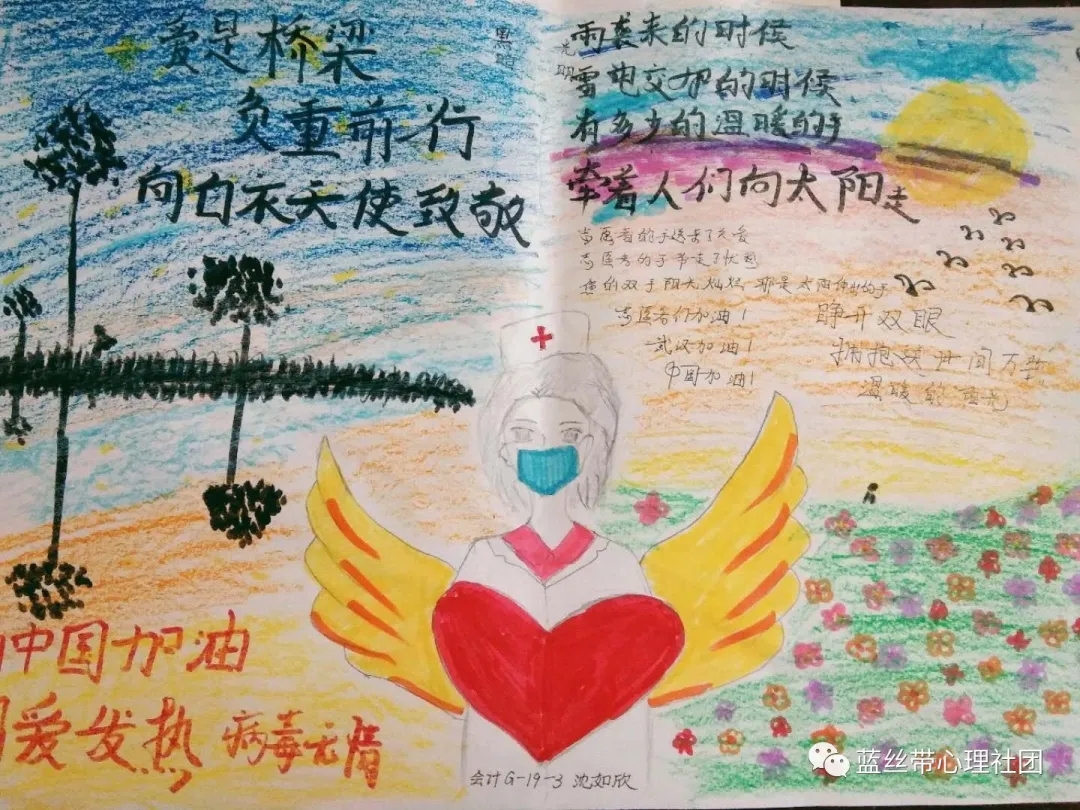 爱是桥梁
负重前行
向白衣天使致敬
黑暗
光明
雨袭来的时候
雷电交加的时候
有多少的温暖的手
牵着人们向太阳走
当医者的手送来了关爱
当医者的手带走了忧愁
您的双手阳光灿烂,那是太阳伸出的手
为医者们加油!
武汉加油!
中国加油!
睁开双眼
拥抱这世间万些
温暖的
中国加油
爱发热 病毒无情
会计G-19-3 沈如欣
蓝丝带心理社团